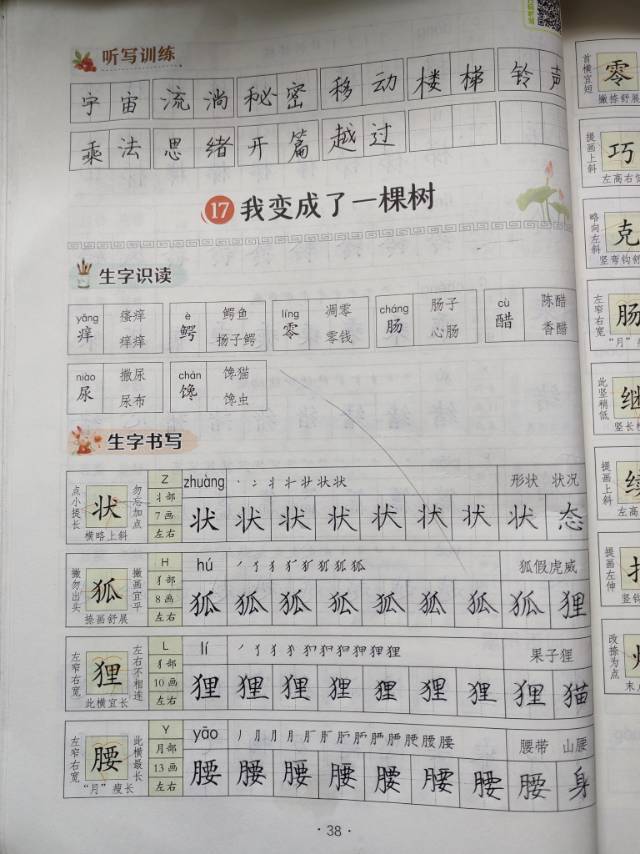 听写训练
宇宙 流淌 秘密 移动 楼梯 铃声
乘法 思绪 开篇 越过
17 我变成了一棵树
生字识读
yǎng 痒 瘙痒 痒痒
è 鳄 鳄鱼 扬子鳄
líng 零 凋零 零钱
cháng 肠 肠子 心肠
cù 醋 陈醋 香醋
niào 尿 撒尿 尿布
chán 馋 馋猫 馋虫
生字书写
点小提长 状 勿忘加点 横略上斜
Z 丬部 7画 左右
zhuàng 形状 状况
状 状 状 状 状 状 状 状 态
撇勿出头 狐 撇画宜平 捺画舒展
H 犭部 8画 左右
hú 狐假虎威
狐 狐 狐 狐 狐 狐 狐 狐 狸
左窄右宽 狸 左右不相连 此横宜长
L 犭部 10画 左右
lí 果子狸
狸 狸 狸 狸 狸 狸 狸 狸 猫
左窄右宽 腰 此横最长 “月”瘦长
Y 月部 13画 左右
yāo 腰带 山腰
腰 腰 腰 腰 腰 腰 腰 腰 身
·38·
首横宜短 零 撇捺舒展
提画上斜 巧
略向左斜 克
左窄右宽 肠
此竖稍低 继
提画上斜
提画左伸
改捺为点